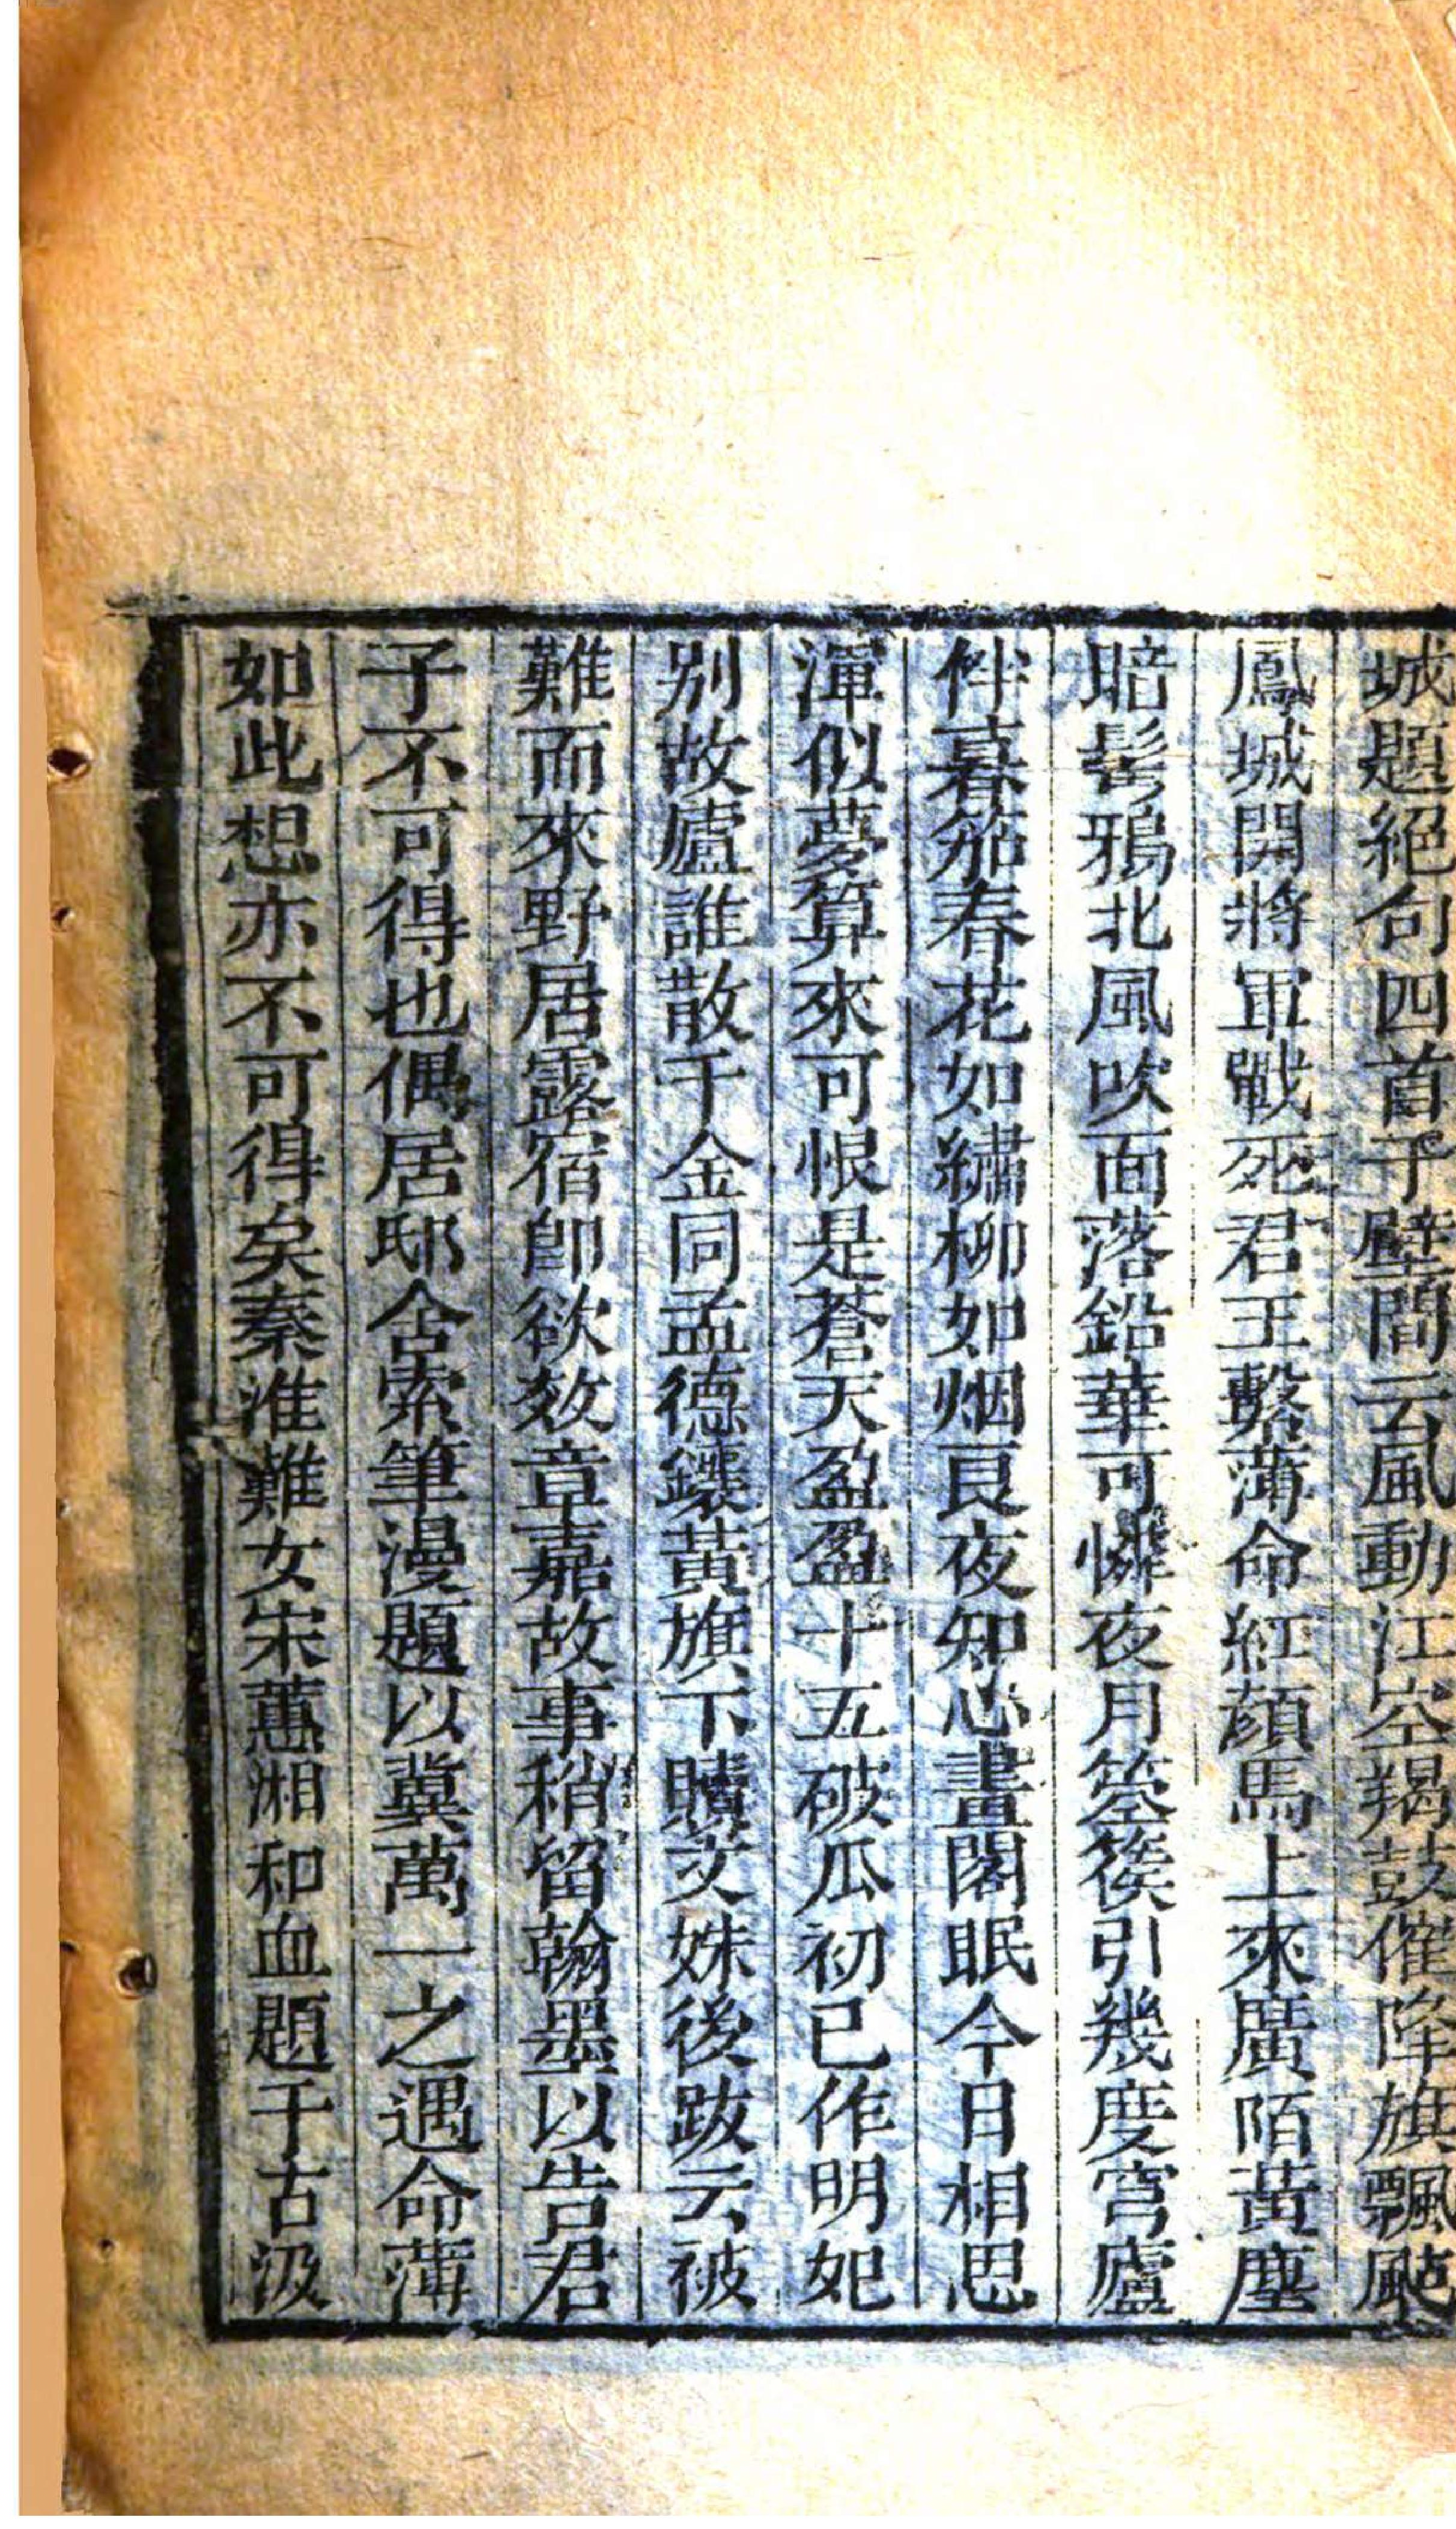 城題絕句四首于壁間云風動江空羯鼓催降旗飄颭
鳳城開將軍戰死君王繫薄命紅顔馬上來廣陌黃塵
暗髩鴉北風吹面落鉛華可憐夜月箜篌引幾度穹廬
伴暮笳春花如繡柳如烟良夜知心畫閣眠今日相思
渾似夢算來可恨是蒼天盈盈十五破瓜初已作明妃
別故廬誰散千金同孟德鑲黃旗下贖文姝後跋云被
難而來野居露宿卽欲效章嘉故事稍留翰墨以告君
子不可得也偶居邸舍索筆漫題以冀萬一之遇命薄
如此想亦不可得矣秦淮難女宋蕙湘和血題于古汲